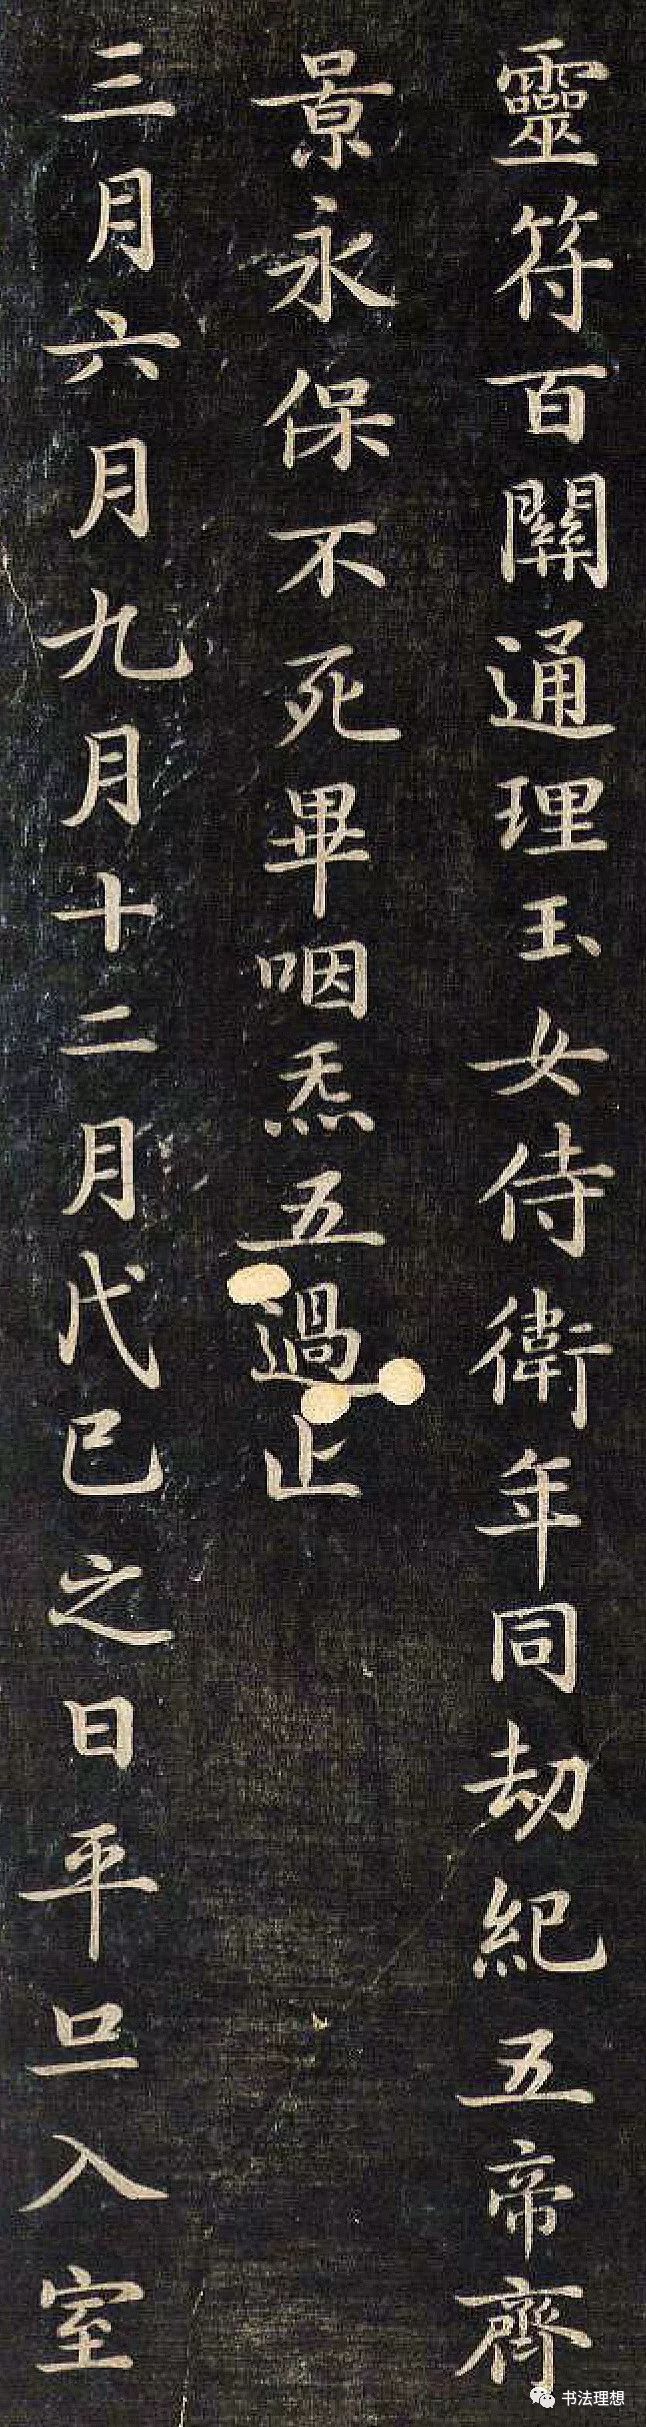 靈符百關通理玉女侍衛年同劫紀五帝齊
景永保不死畢咽炁五過止
三月六月九月十二月代巳之日平旦入室
书法理想